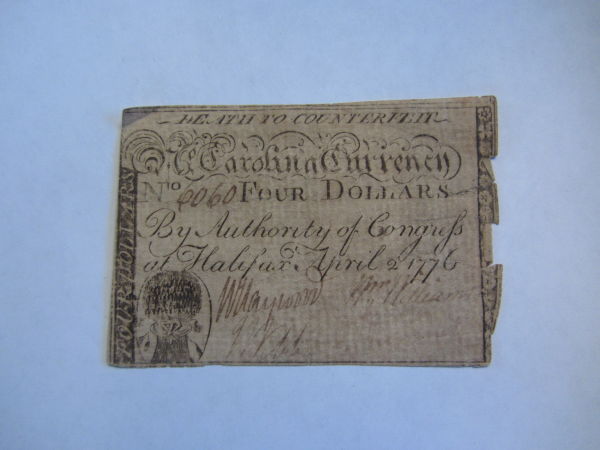 DEATH TO COUNTERFEIT
N. Carolina Currency
No 6060 FOUR DOLLARS
By Authority of Congress
at Halifax April 2 1776
FOUR DOLLARS
W Haywood